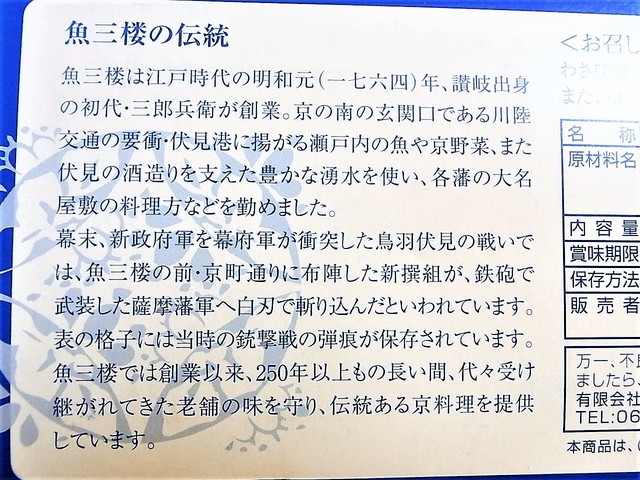 魚三楼の伝統
魚三楼は江戸時代の明和元(一七六四)年、讃岐出身
の初代・三郎兵衛が創業。京の南の玄関口である川陸
交通の要衝・伏見港に揚がる瀬戸内の魚や京野菜、また
伏見の酒造りを支えた豊かな湧水を使い、各藩の大名
屋敷の料理方などを勤めました。
幕末、新政府軍を幕府軍が衝突した鳥羽伏見の戦いで
は、魚三楼の前・京町通りに布陣した新撰組が、鉄砲で
武装した薩摩藩軍へ白刃で斬り込んだといわれています。
表の格子には当時の銃撃戦の弾痕が保存されています。
魚三楼では創業以来、250年以上もの長い間、代々受け
継がれてきた老舗の味を守り、伝統ある京料理を提供
しています。
<お召し
わさび
また、
名 称
原材料名
内容量
賞味期限
保存方法
販売者
万一、不良
ましたら、
有限会社
TEL:06
本商品は、